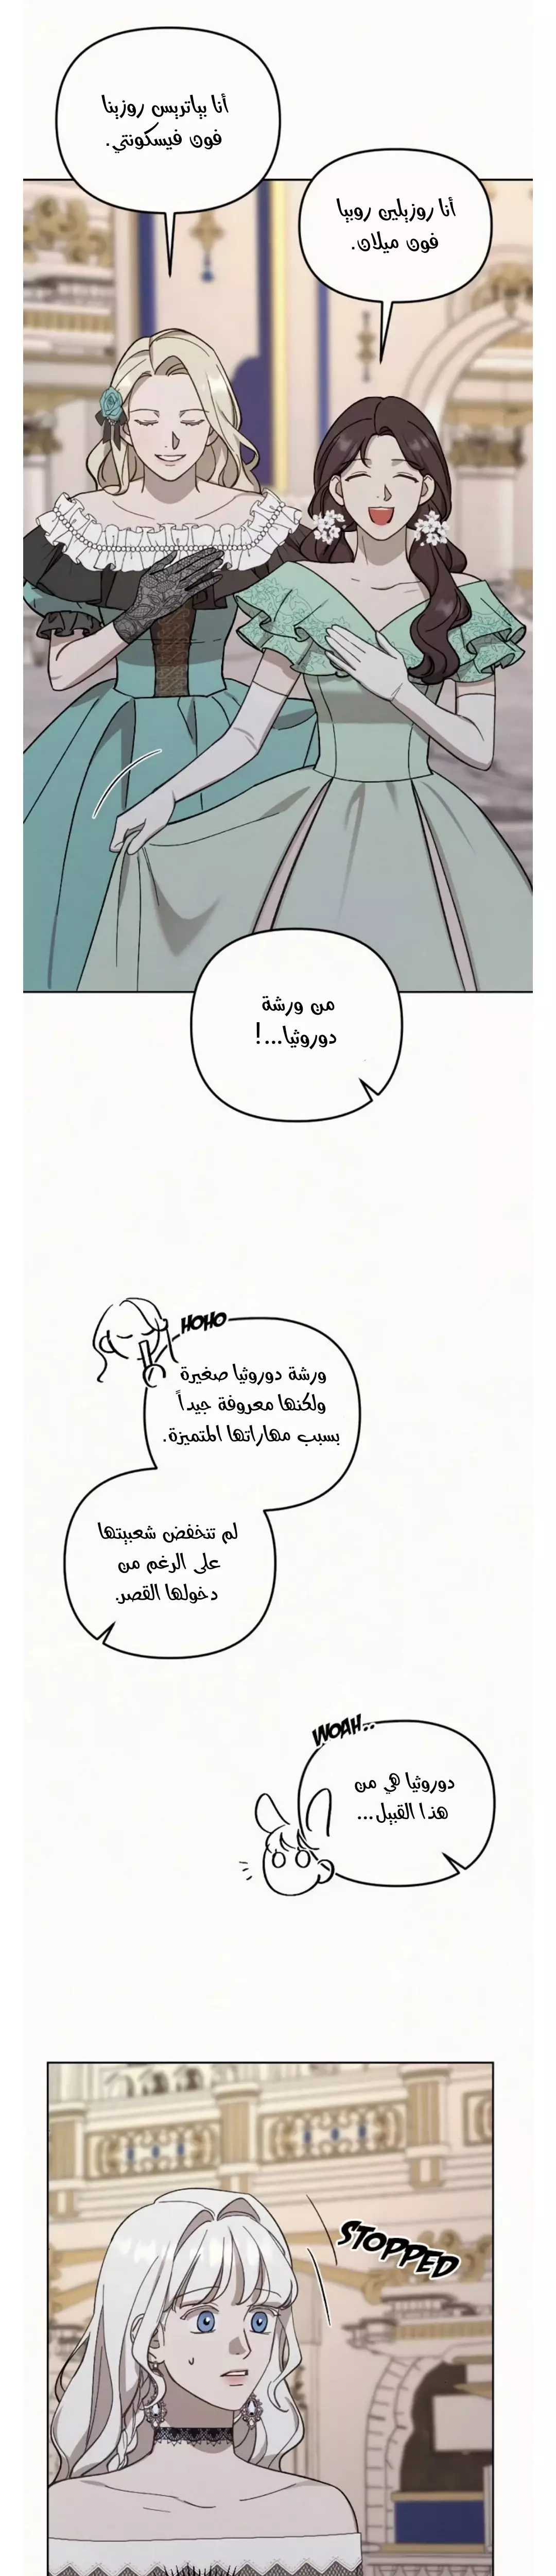 أنا بياتريس روزينا
فون فيسكونتي.
أنا روزيلين روبيا
فون ميلان.
من ورشة
دوروثيا...!
HOHO
ورشة دوروثيا صغيرة
ولكنها معروفة جيداً
بسبب مهاراتها المتميزة.
لم تنخفض شعبيتها
على الرغم من
دخولها القصر.
WOAH..
دوروثيا هي من
هذا القبيل...
STOPPED